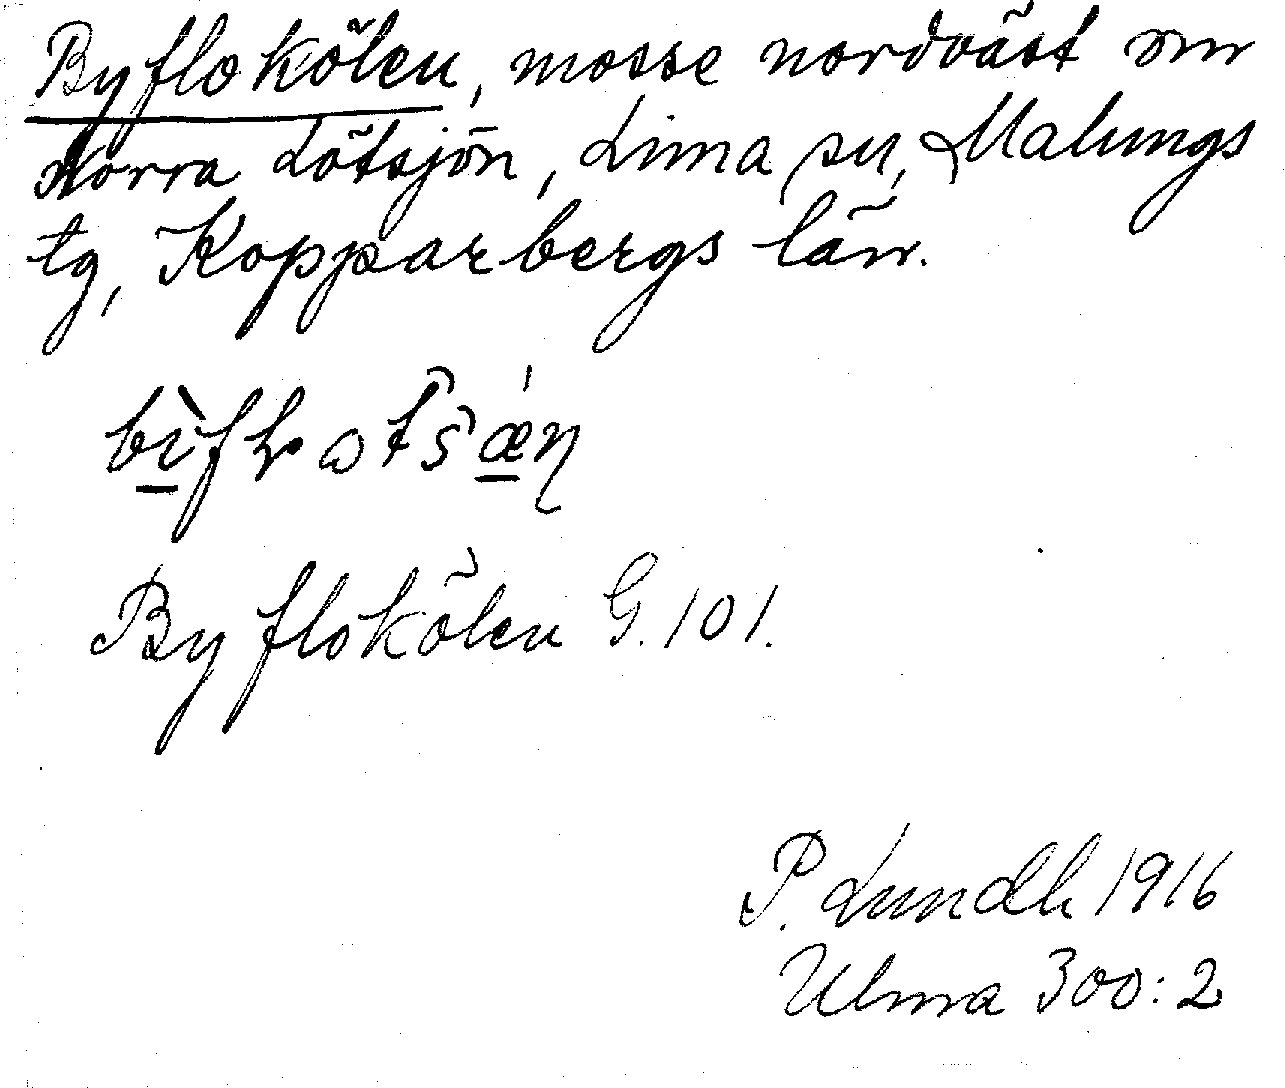 Byflokölen, mosse nordväst om
Norra Lötsjön, Lima sn, Malungs
tg, Kopparbergs län.
Byflokölen G. 101.
P. Lundh 1916
Ulma 300:2